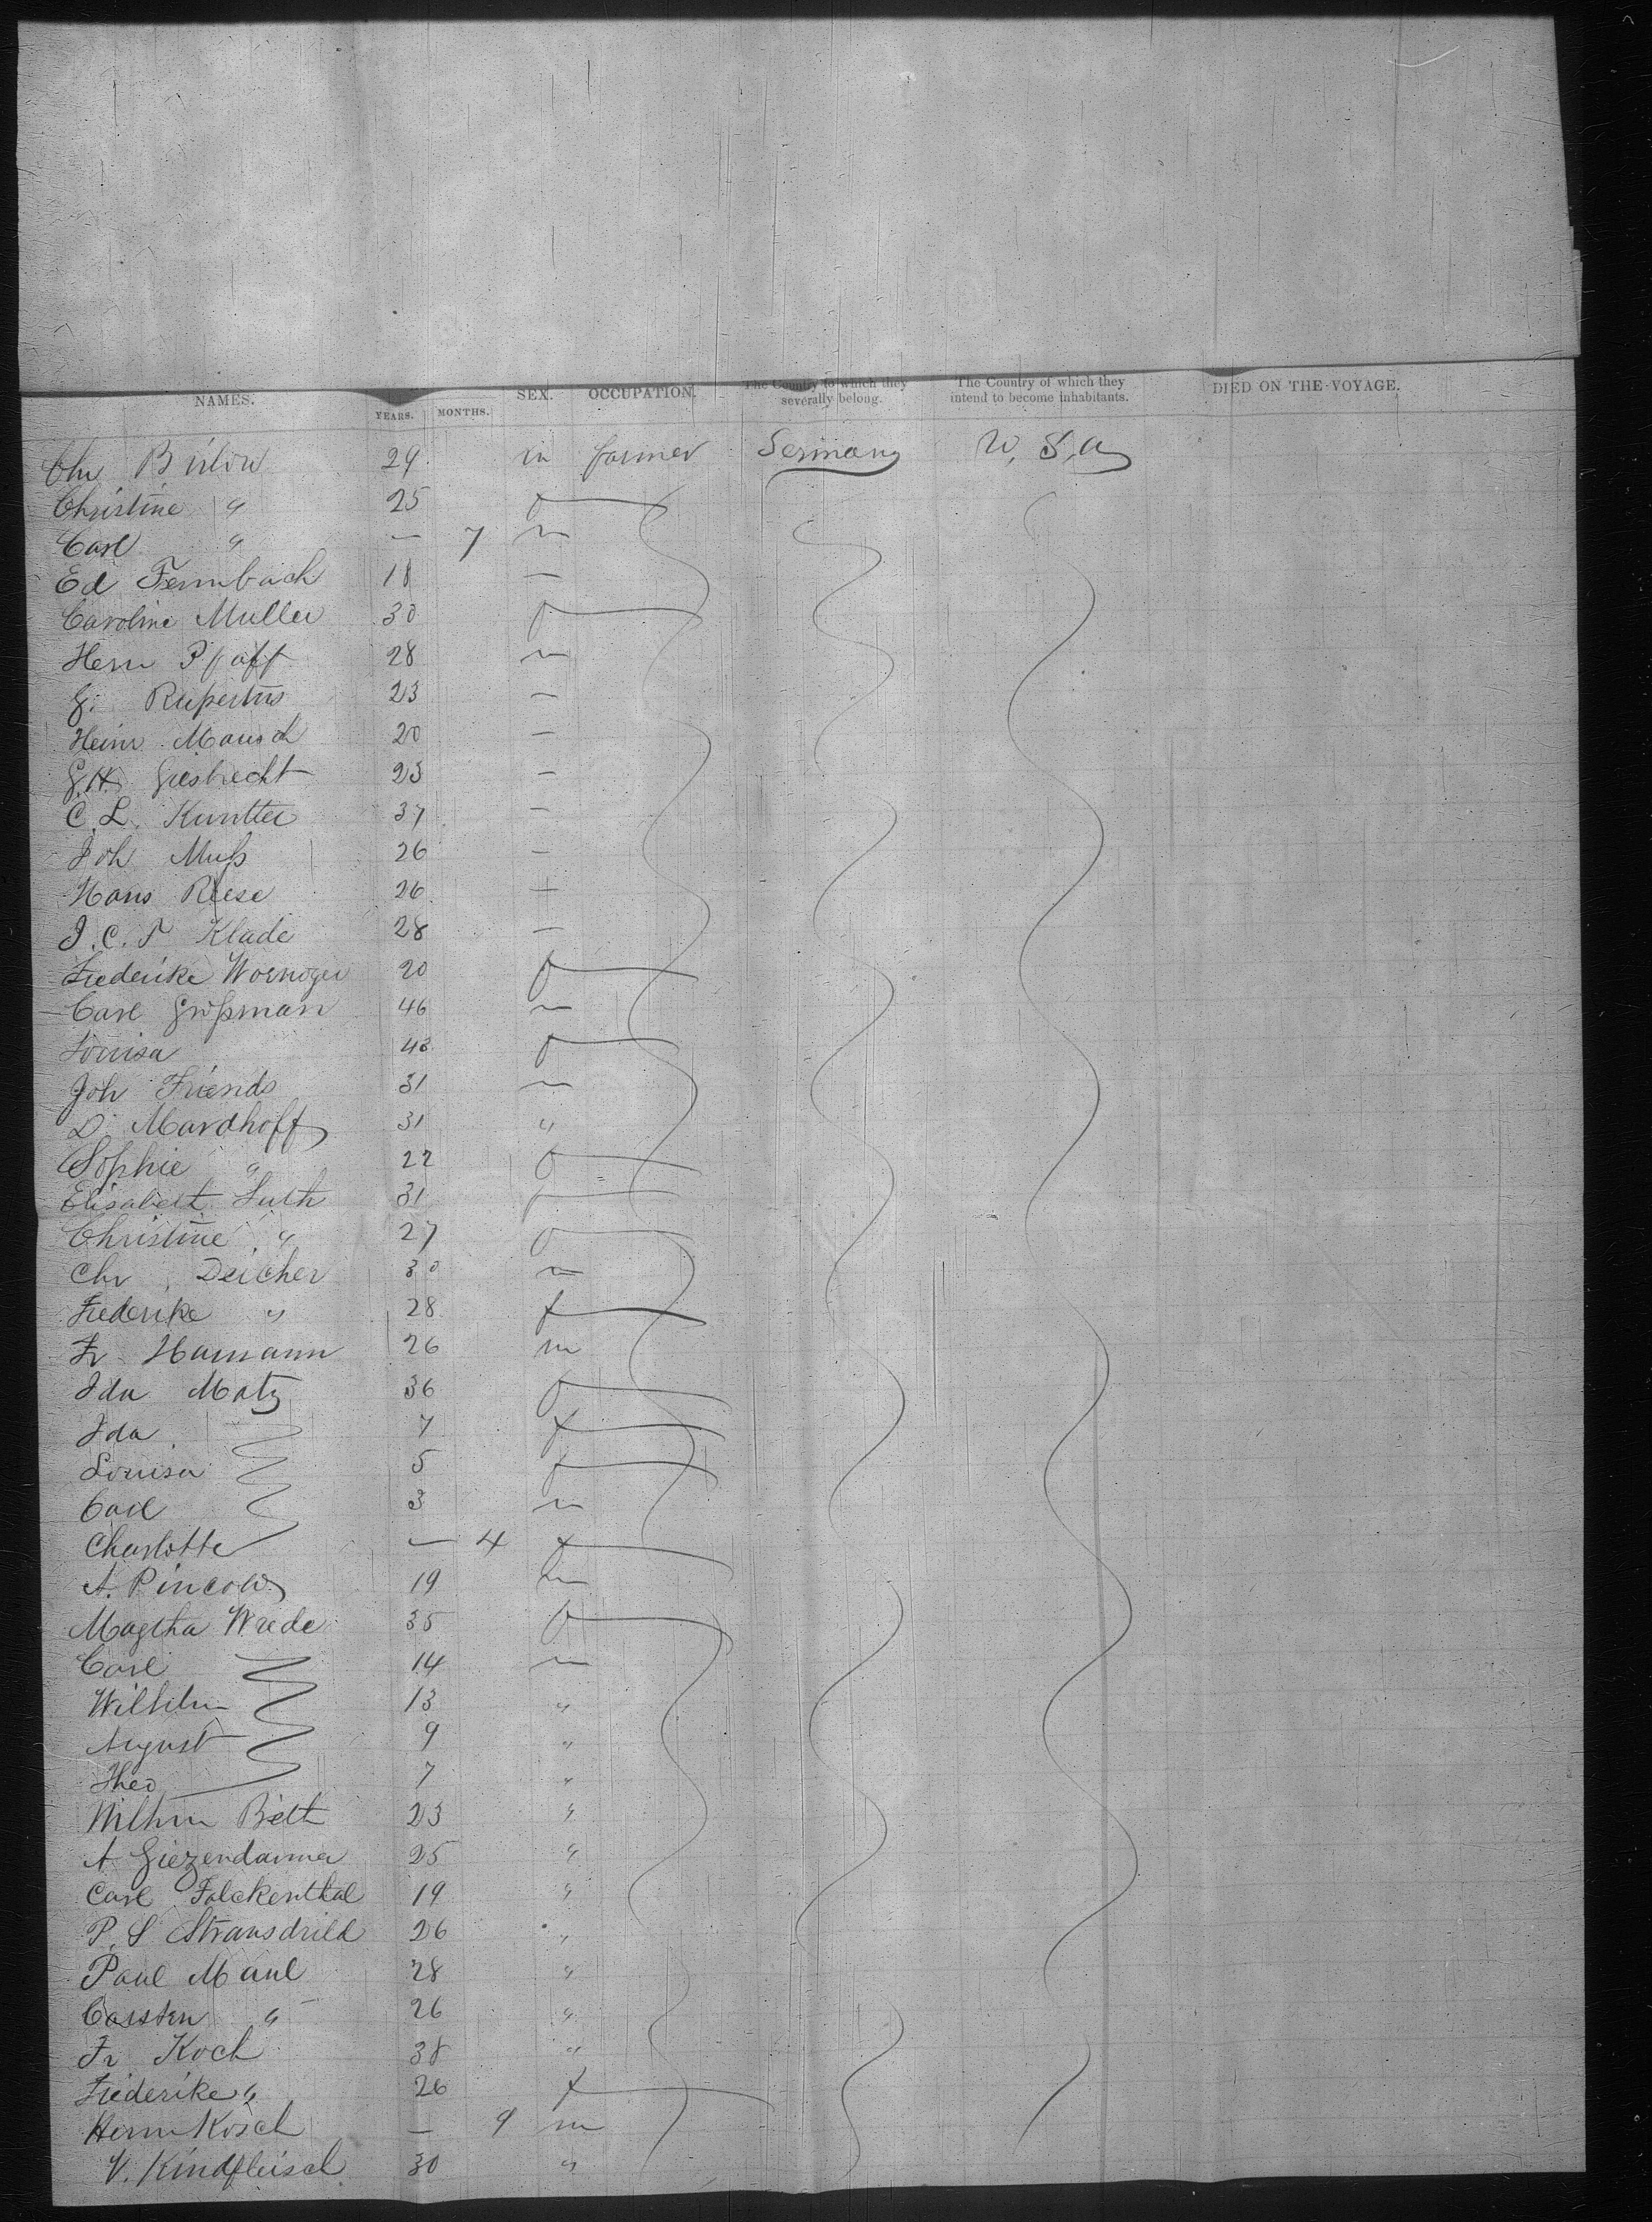 NAMES. YEARS. MONTHS. SEX. OCCUPATION. The Country to which they severally belong. The Country of which they intend to become inhabitants. DIED ON THE VOYAGE.
Chr Bülow 29 m farmer Germany U. S. A
Christine " 25 f
Carl " — 7 m
Ed Fernbach 18 —
Caroline Muller 30 f
Herm Pfaff 28 m
G. Rupertus 23 —
Heinr Mausch 20 —
G. H. Giesbrecht 23 —
C. L. Kuntter 37 —
Joh Muß 26 —
Hans Reese 26 —
J. C. F Klade 28 —
Frederike 20 f
Carl Großman 46 m
Louisa 43 f
Joh Friends 31 m
D. Mardhoff 31 "
Sophie " 22 f
Elisabeth Luth 31 f
Christine " 27 f
Chr Deicher 30 m
Frederike " 28 f
Fr Hamann 26 m
Ida Matz 36 f
Ida 7 f
Louisa 5 f
Carl 3 m
Charlotte — 4 f
A. Pincow 19 m
Magtha Wrede 35 f
Carl 14 m
Wilhelm 13 "
August 9 "
Theo 7 "
Wilhm Belt 23 "
A Giezendanner 25 "
Carl Falckenthal 19 "
P. S 26 "
Paul Maul 28 "
Carsten " 26 "
Fr Koch 38 "
Friederike " 26 f
Herm Kosch — 9 m
V. Kindfleisch 30 "